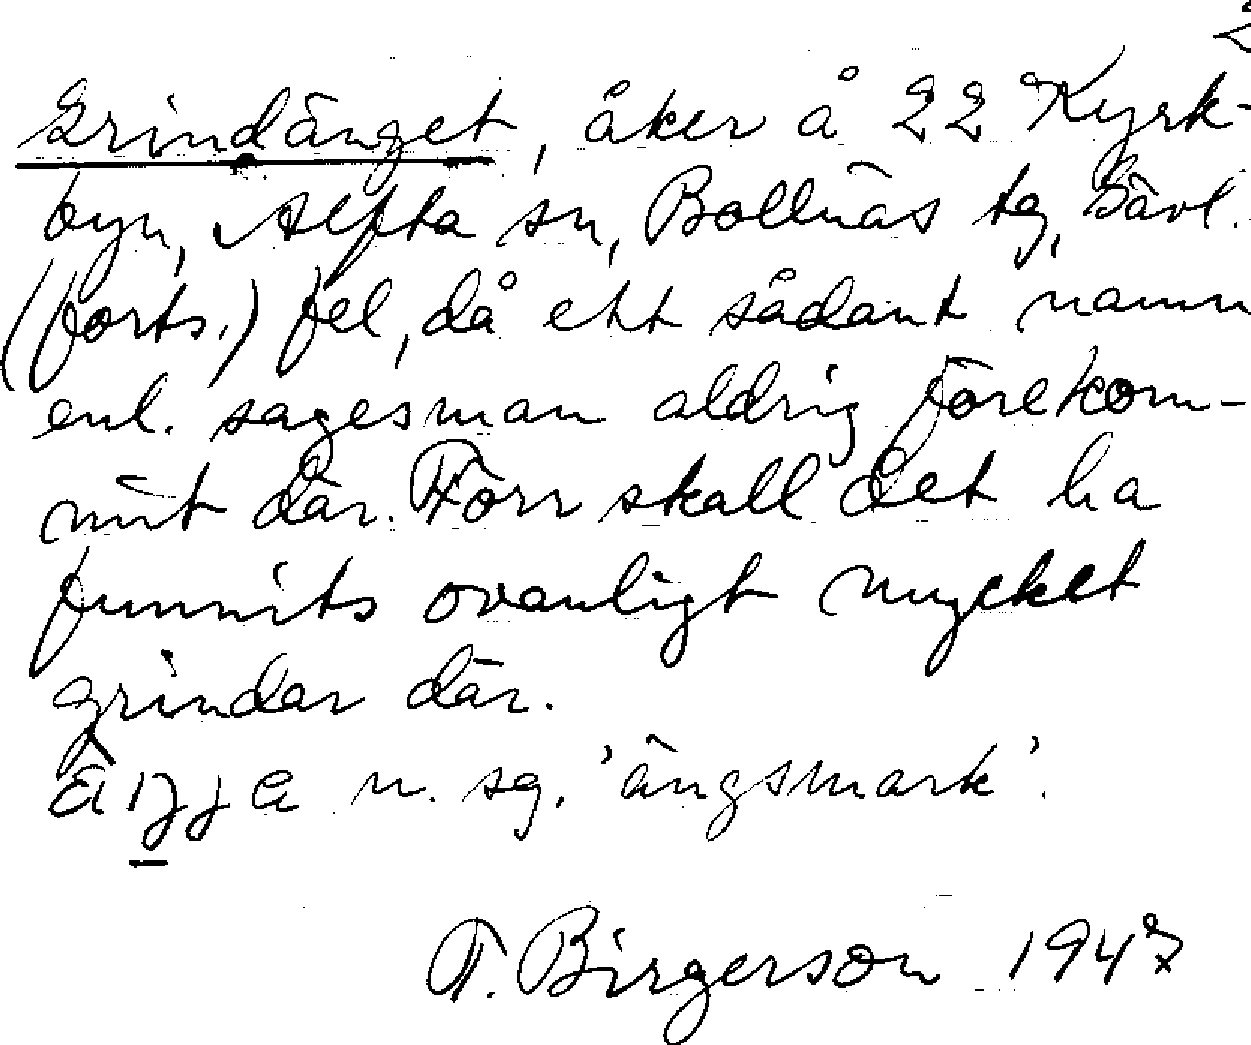 Grindänget, åker å 22 Kyrk-
byn, Alfta sn, Bollnäs tg, Gävl.
(forts.) fel, då ett sådant namn
enl. sagesman aldrig förekom-
mit där. Förr skall det ha
funnits ovanligt mycket
grindar där.
äŋja n. sg. 'ängsmark'.
T. Birgerson 1947